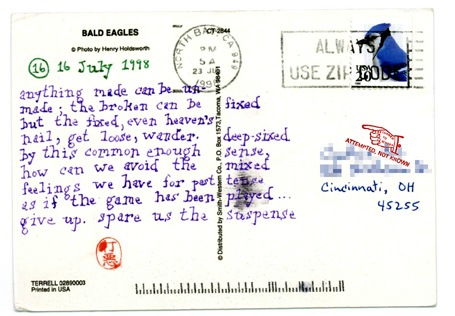 BALD EAGLES
© Photo by Henry Holdsworth
CT-2844
16 16 July 1998
anything made can be un-
made; the broken can be fixed
but the fixed, even heaven's
nail, get loose, wander. deep-sixed
by this common enough sense,
how can we avoid the mixed
feelings we have for past tense
as if the game has been played...
give up. spare us the suspense
TERRELL 32890003
Printed in USA
© Distributed by Smith-Western Co., P.O. Box 1573, Tacoma, WA 98401
NORTH BAY CA
PM
23 JUL
ALWAYS
USE ZIP CODE
ATTEMPTED, NOT KNOWN
Cincinnati, OH
45255